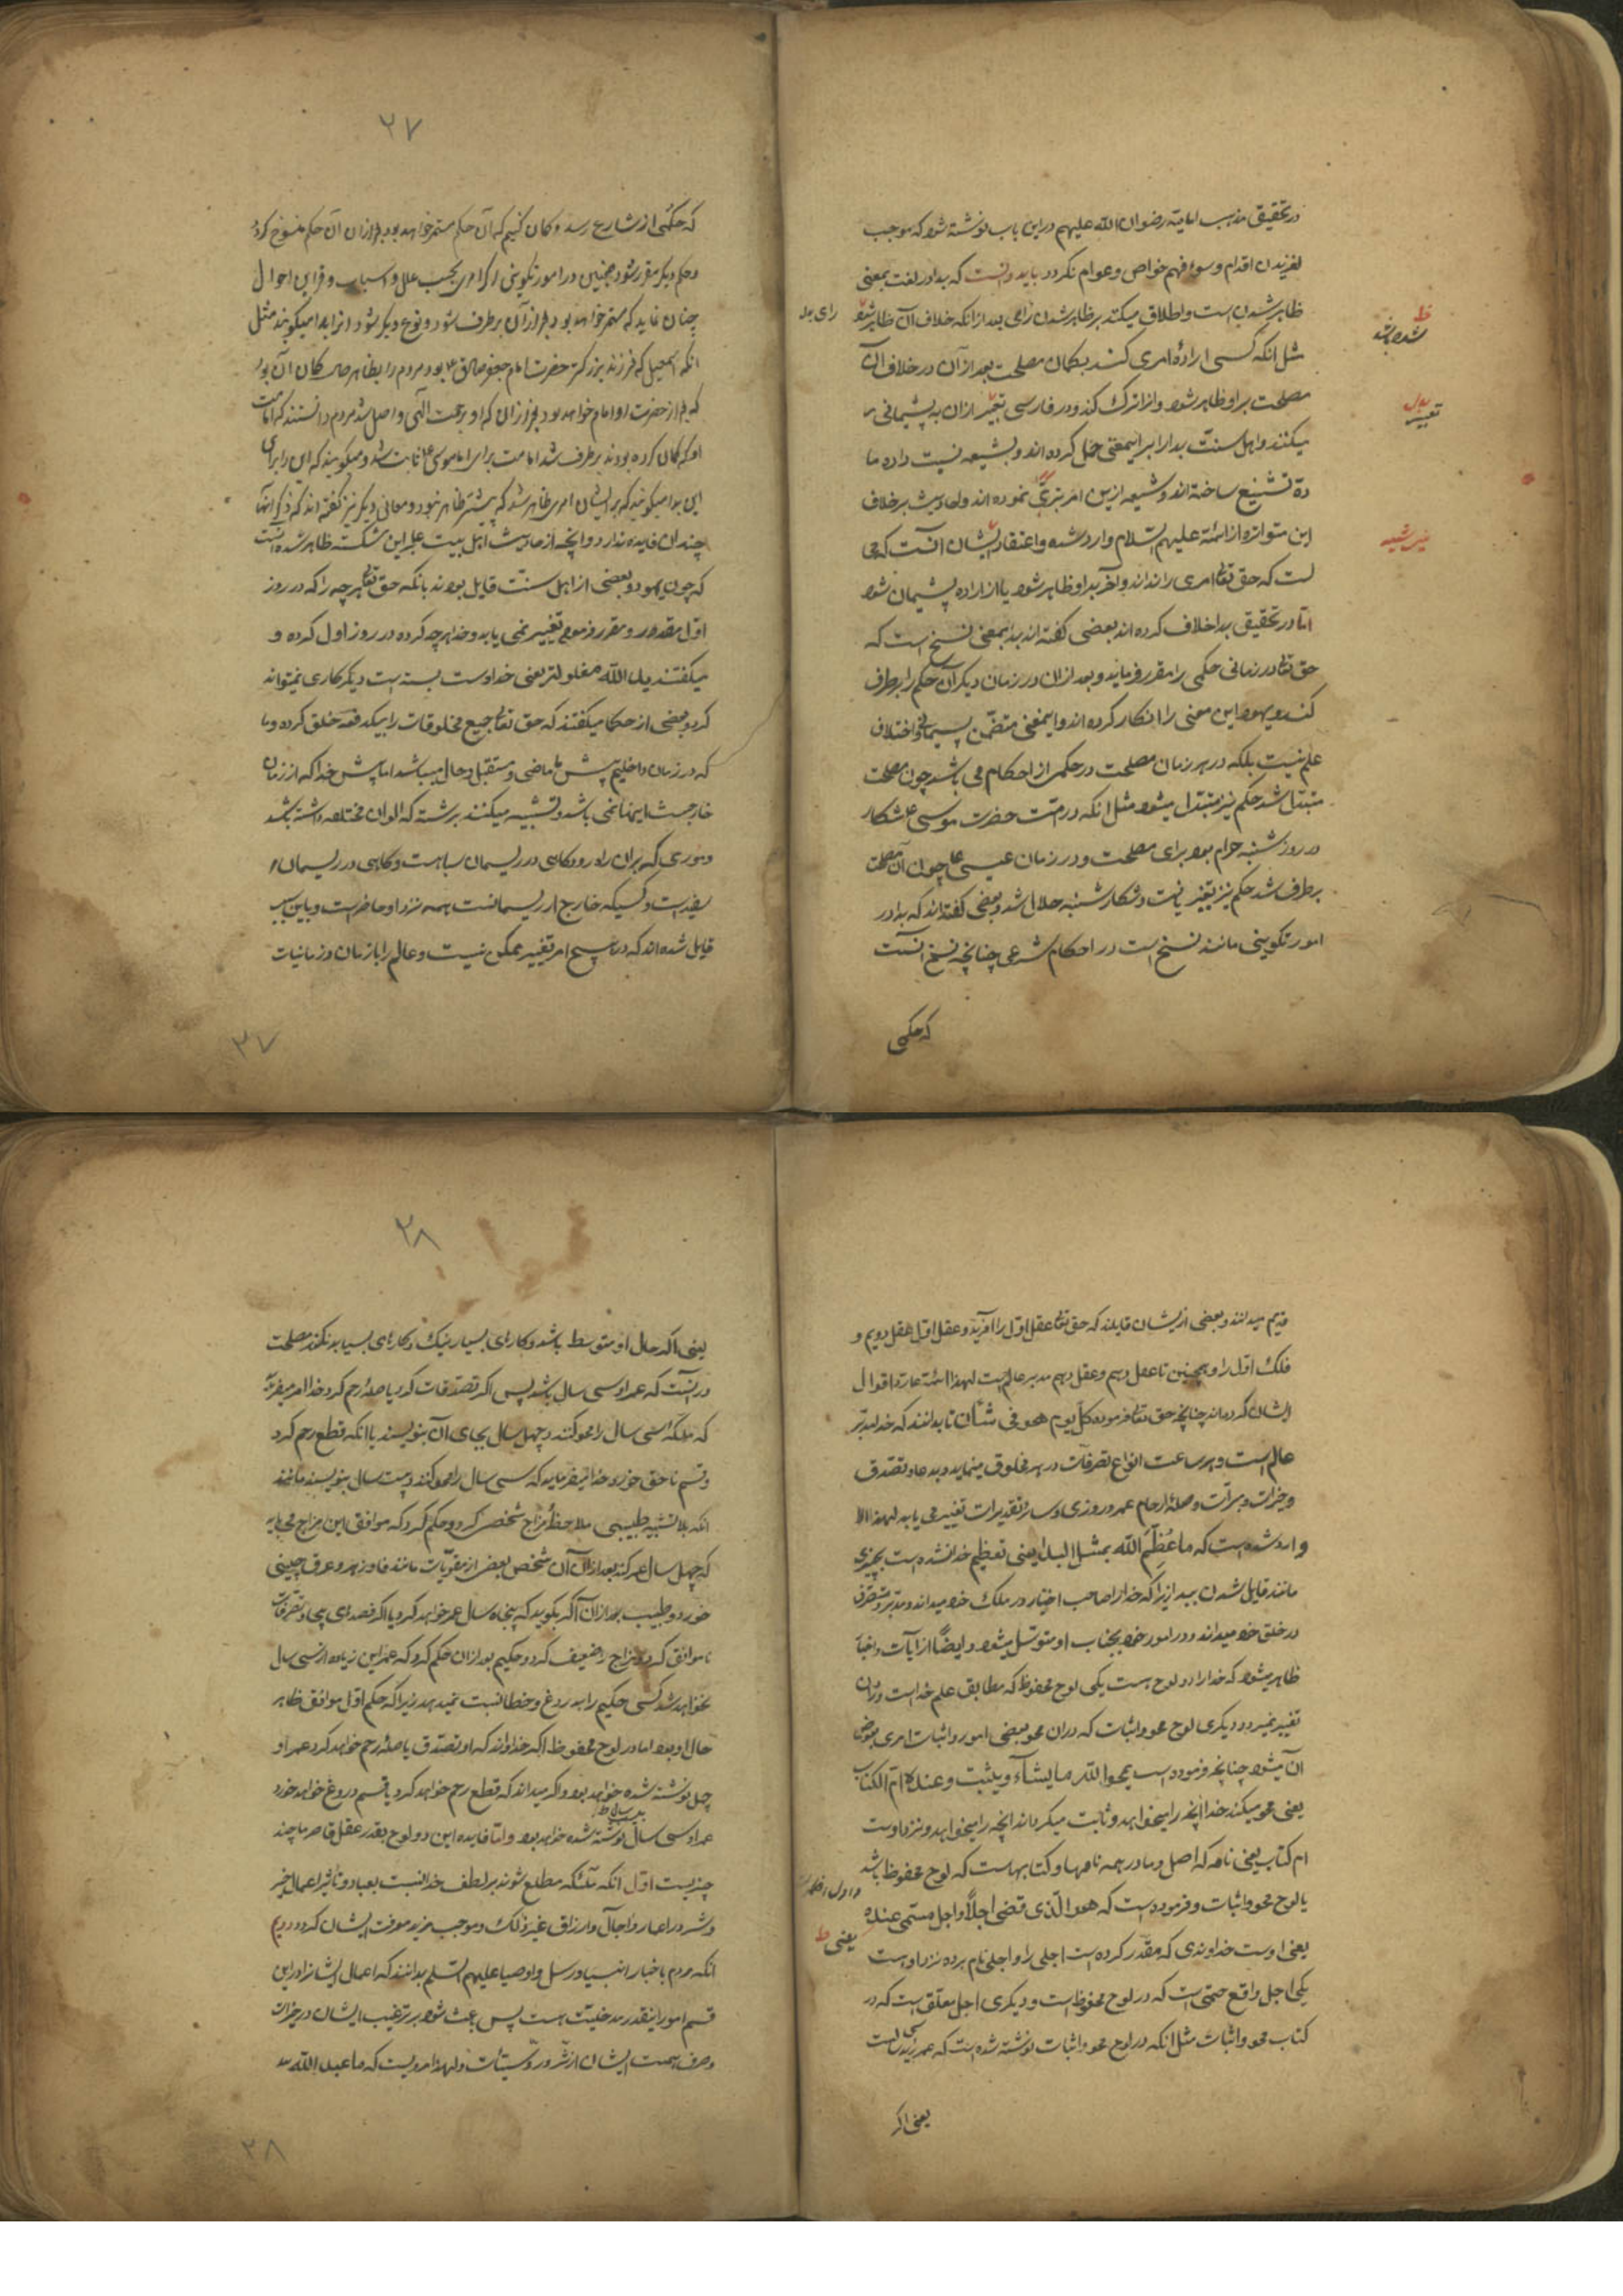 در تحقیق مذهب امامیّه رضوان الله علیهم درین باب نوشته شود که موجب
لغزیدن اقدام و سوء فهم خواص و عوام نکردد باید دانست که بدا در لغت بمعنی
ظاهر شدنست و اطلاق میکنند بر ظاهر شدن رائی بعد از انکه خلاف آن ظاهر شود
مثل انکه کسی ارادهٔ امری کند بکمان مصلحت بعد از آن در خلاف آن
مصلحت بر او ظاهر شود و از ان ترک کند و در فارسی تعبیر ازان به پشیمانی
میکنند و اهل سنّت بدا را بر اینمعنی حمل کرده اند و بشیعه نسبت داده
تشنیع ساخته اند و شیعه ازین امر تبرّی نموده اند و احادیث بر خلاف
این متواتره از ائمّه علیهم السّلام وارد شده و اعتقاد ایشان آنست که
که حق تعالی امری را نداند و آخر بر او ظاهر شود یا از اراده پشیمان شود
امّا در تحقیق بدا خلاف کرده اند بعضی کفته اند بدا بمعنی نسخ است که
حق تعالی در زمانی حکمی را مقرر فرماید و بعد از ان در زمان دیکر آن حکم را بر طرف
کند و یهود این معنی را انکار کرده اند و اینمعنی متضمّن پشیمانی و اختلاف
علم نیست بلکه در هر زمان مصلحت در حکمی از احکام می باشد چون مصلحت
متبدّل شد حکم نیز متبدّل میشود مثل انکه در امّت حضرت موسی ع شکار
در روز شنبه حرام بود برای مصلحت و در زمان عیسی ع چون آن مصلحت
بر طرف شد حکم نیز تغییر یافت و شکار شنبه حلال شد و بعضی کفته اند که بدا در
امور تکوینی مانند نسخ است در احکام شرعی چنانچه نسخ آنست
که حکمی
ظ
شده باشد
بدل
تعبیر
رای بد
۲۷
که حکمی از شارع رسد و کمان کنیم که آن حکم مستمر خواهد بود بعد از ان آن حکم منسوخ کردد
و حکم دیکر مقرر شود همچنین در امور تکوینی اکر امری بحسب علل و اسباب و قراین احوال
چنان نماید که مستمر خواهد بود بعد از آن بر طرف شود و نوع دیکر شود انرا بدا میکویند مثل
انکه اسمعیل که فرزند بزرکتر حضرت امام جعفر صادق ع بود مردم را بظاهر حال کمان آن بود
که بعد از حضرت او امام خواهد بود بعد از ان که او برحمت الهی واصل شد مردم دانستند که امامت
او که کمان کرده بودند بر طرف شد امامت برای امام موسی ع ثابت شد و میکویند که این را برای
این بدا میکویند که بر ایشان امری ظاهر شد که پیشتر ظاهر نبود و معانی دیکر نیز کفته اند که ذکر آنها
چندان فایده ندارد و آنچه از احادیث اهل بیت بر این شکسته ظاهر شده آنست
که چون یهود و بعضی از اهل سنّت قایل بودند بانکه حق تعالی هر چه را که در روز
اوّل مقدور و مقرر فرموده تغییر نمی یابد و خدا هر چه کرده در روز اول کرده و
میکفتند ید الله مغلوله یعنی خدا دست بسته است دیکر کاری نمیتواند
کرد و بعضی از حکما میکفتند که حق تعالی جمیع مخلوقات را بیکدفعه خلق کرده و ما
که در زمان داخلیم پیش ما ماضی و مستقبل و حال میباشد اما پیش خدا که از زمان
خارجست اینها نمی باشد و تشبیه میکنند برشته که الوان مختلفه داشته باشد
و موری که بران راه رود کاهی در ریسمان سیاهست و کاهی در ریسمان
سفیدست و کسیکه خارج از ریسمانست همه نزد او حاضرست و باین سبب
قایل شده اند که در هیچ امر تغییر ممکن نیست و عالم را با زمان و زمانیات
۲۷
قدیم میدانند و بعضی از ایشان قایلند که حق تعالی عقل اوّل را آفرید و عقل اوّل عقل دویم و
فلک اوّل را و همچنین تا عقل دهم و عقل دهم مدبر عالم است لهذا ائمّه ع ردّ اقوال
ایشان کرده اند چنانچه حق تعالی فرموده کلّ یوم هو فی شأن تا بدانند که خدا مدبّر
عالم است و هر ساعت انواع تصرفات در هر مخلوق مینماید و بدعا و تصدق
و خیرات و مبرّات و صلهٔ ارحام عمر و روزی و سایر تقدیرات تغییر می یابد لهذا
وارد شده است که ما عُظّم الله بمثل البدا یعنی تعظیم خدا نشده است بچیزی
مانند قایل شدن ببدا زیرا که خدا را صاحب اختیار در ملک خود میداند و مدبّر و متصرف
در خلق خود میداند و در امور خود بجناب او متوسّل میشود و ایضاً از آیات و اخبار
ظاهر میشود که خدا را دو لوح هست یکی لوح محفوظ که مطابق علم خداست و دران
تغییر نمیرود و دیکری لوح محو و اثبات که دران محو بعضی امور و اثبات امری بعوض
آن میشود چنانچه فرموده است یمحوا الله ما یشاء و یثبت و عنده امّ الکتاب
یعنی محو میکند خدا آنچه را میخواهد و ثابت میکرداند آنچه را میخواهد و نزد اوست
ام کتاب یعنی نامه که اصل و مادر همه نامها و کتابهاست که لوح محفوظ باشد
یا لوح محو و اثبات و فرموده است که هو الّذی قضی اجلاً و اجل مسمّی عنده
یعنی اوست خداوندی که مقدّر کرده است اجلی را و اجلی نام برده نزد اوست
یکی اجل واقع حتمی است که در لوح محفوظ است و دیکری اجل معلّق است که در
کتاب محو و اثبات مثل انکه در لوح محو و اثبات نوشته شده است که عمر زید سی است
یعنی اکر
یعنی ظ
۲۸
یعنی اکر حال او متوسط باشد و کارهای بسیار نیک و کارهای بسیار بد نکند مصلحت
در آنست که عمر او سی سال باشد پس اکر تصدّقات کرد یا صلهٔ رحم کرد خدا امر میفرماید
که ملائکه سی سال را محو کنند و چهل سال بجای آن بنویسند یا انکه قطع رحم کرد
و قسم ناحق خورد خدا میفرماید که سی سال را محو کنند و بیست سال بنویسند مانند
انکه بلا تشبیه طبیبی ملاحظهٔ مزاج شخصی کرد و حکم کرد که موافق این مزاج می باید
که چهل سال عمر کند بعد از ان آن شخص بعضی از مقویّات مانند فاد زهر و عرق چینی
خورد و طبیب بعد از ان اکر بکوید که پنجاه سال عمر خواهد کرد یا اکر فصدهای بیجا و تصرفات
ناموافق کرد و مزاج را ضعیف کرد و حکیم بعد از ان حکم کرد که عمر این زیاده از سی سال
نخواهد شد کسی حکیم را بدروغ و خطا نسبت نمیدهد زیرا که حکم اوّل موافق ظاهر
حال او بود اما در لوح محفوظ اکر خدا داند که او تصدّق یا صلهٔ رحم خواهد کرد عمر او
چهل نوشته شده خواهد بود و اکر میداند که قطع رحم خواهد کرد یا قسم دروغ خواهد خورد
عمر او سی سال نوشته شده خواهد بود و امّا فایده این دو لوح بقدر عقل قاصر ما چند
چیز است اوّل انکه ملائکه مطلع شوند بر لطف خدا نسبت بعباد و تأثیر اعمال خیر
و شر در اعمار و آجال و ارزاق و غیر ذلک و موجب مزید معرفت ایشان کردد دویم
انکه مردم باخبار انبیا و رسل و اوصیا علیهم السّلم بدانند که اعمال ایشانرا در این
قسم امور اینقدر مدخلیّت هست پس باعث شود بر ترغیب ایشان در خیرات
و صرف همت ایشان از شرور و سیّئات و لهذا مرویست که ما عبد الله
۲۸